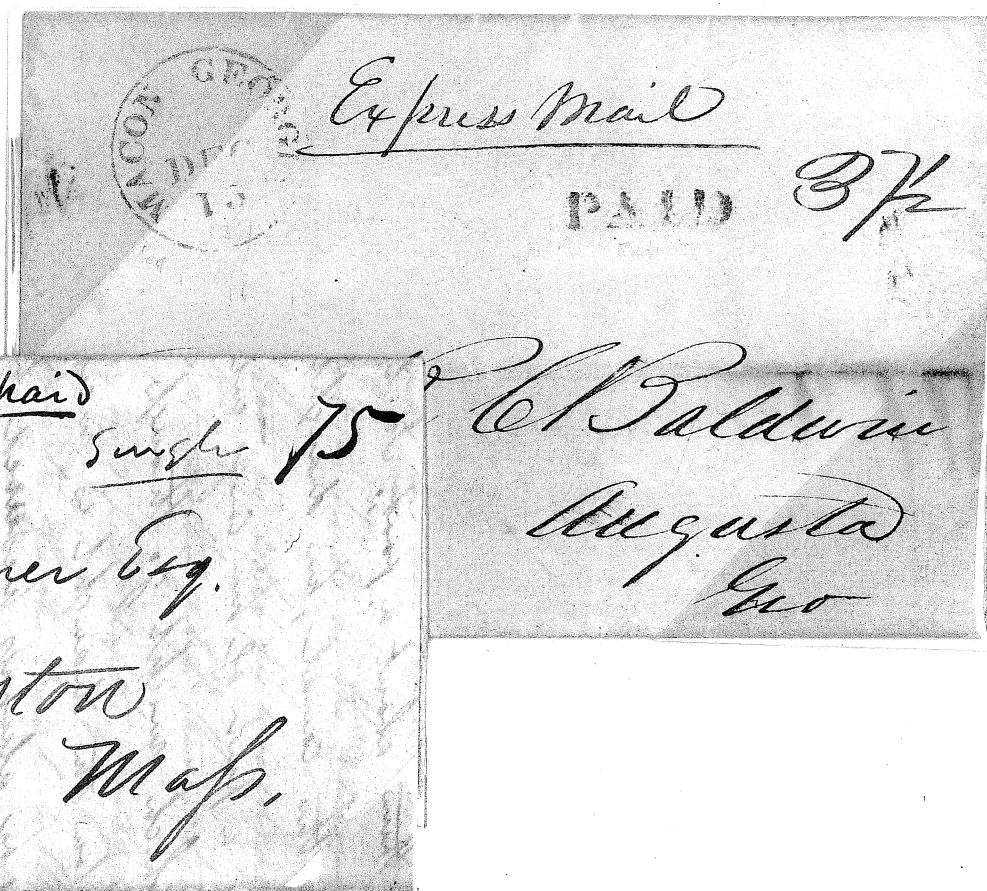 MACON GEORGI
DEC
Express Mail
PAID
37½
Baldwin
Augusta
Geo
paid
Single 75
ner Esq.
ston
Mass.